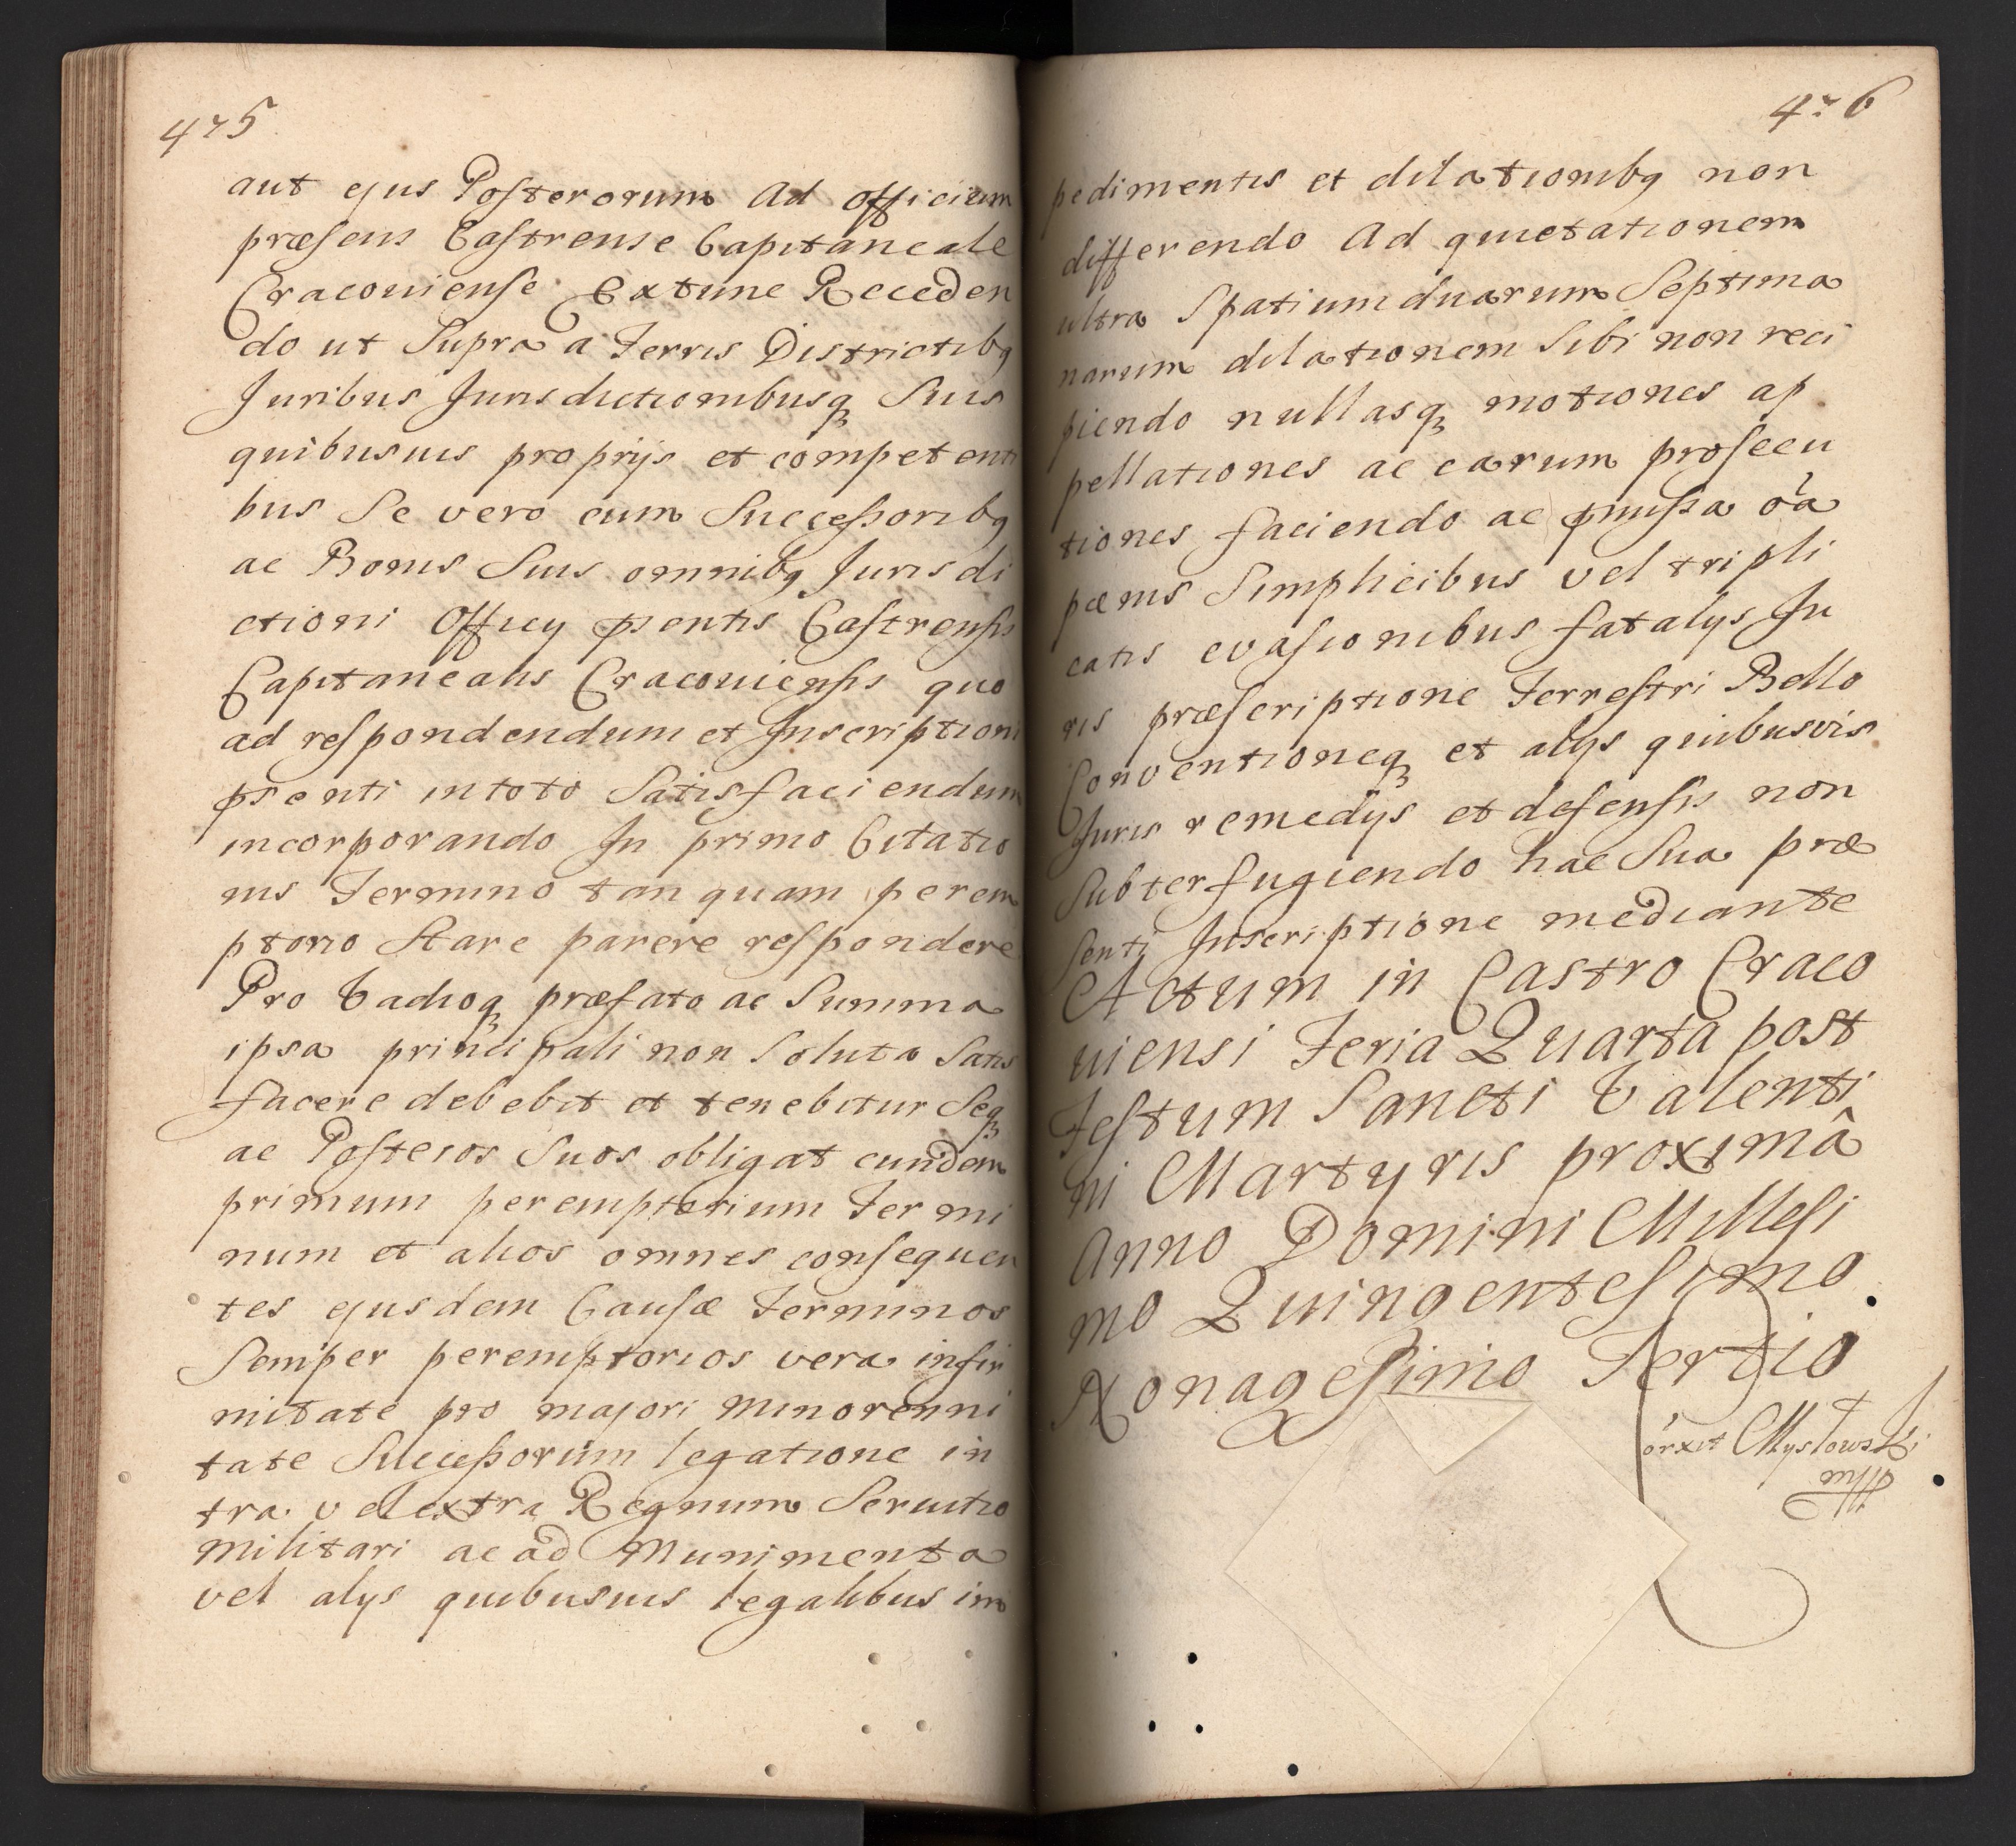 475
aut ejus Posterorum Ad officium
præsens Castrense Capitaneale
Cracouiense Extunc Receden
do ut Supra a Terris Districtibq
Juribus Jurisdictionibusq Suis
quibusuis proprijs et competenti
bus Se vero cum Successoribq
ac Bonis Suis omnibq Jurisdi
ctioni Officij psentis Castrensis
Capitanealis Cracouiensis quo
ad respondendum et Inscriptioni
psenti in toto Satisfaciendum
incorporando In primo Citatio
nis Termino tanquam perem
ptorio Stare parere respondere
Pro Vadioq præfato ac Summa
ipsa principali non Soluta Satis
facere debebit et tenebitur Seq
ac Posteros Suos obligat eundem
primum peremptorium Termi
num et alios omnes consequen
tes ejusdem Causæ Terminos
Semper peremptorios vera infir
mitate pro majori minorenni
tate Successorum legatione in
tra vel extra Regnum Seruitio
Militari ac ad Munimenta
vel alijs quibusuis legalibus im
476
pedimentis et dilationibq non
differendo Ad quietationem
ultra Spatium duarum Septima
narum dilationem Sibi non reci
piendo nullasq motiones ap
pellationes ac earum prosecu
tiones faciendo ac pmissa oa
pænis Simplicibus vel tripli
catis evasionibus fatalijs Ju
ris præscriptione Terrestri Bello
Conventioneq et alijs quibusvis
Juris remedijs et defensis non
Subterfugiendo hac Sua præ
senti Inscriptione mediante
Actum in Castro Craco
uiensi Feria Quarta post
Festum Sancti Valenti
ni Martyris proximâ
Anno Domini Millesi
mo Quingentesimo
Nonagesimo Tertio
Corxit Mysłowski
mpp